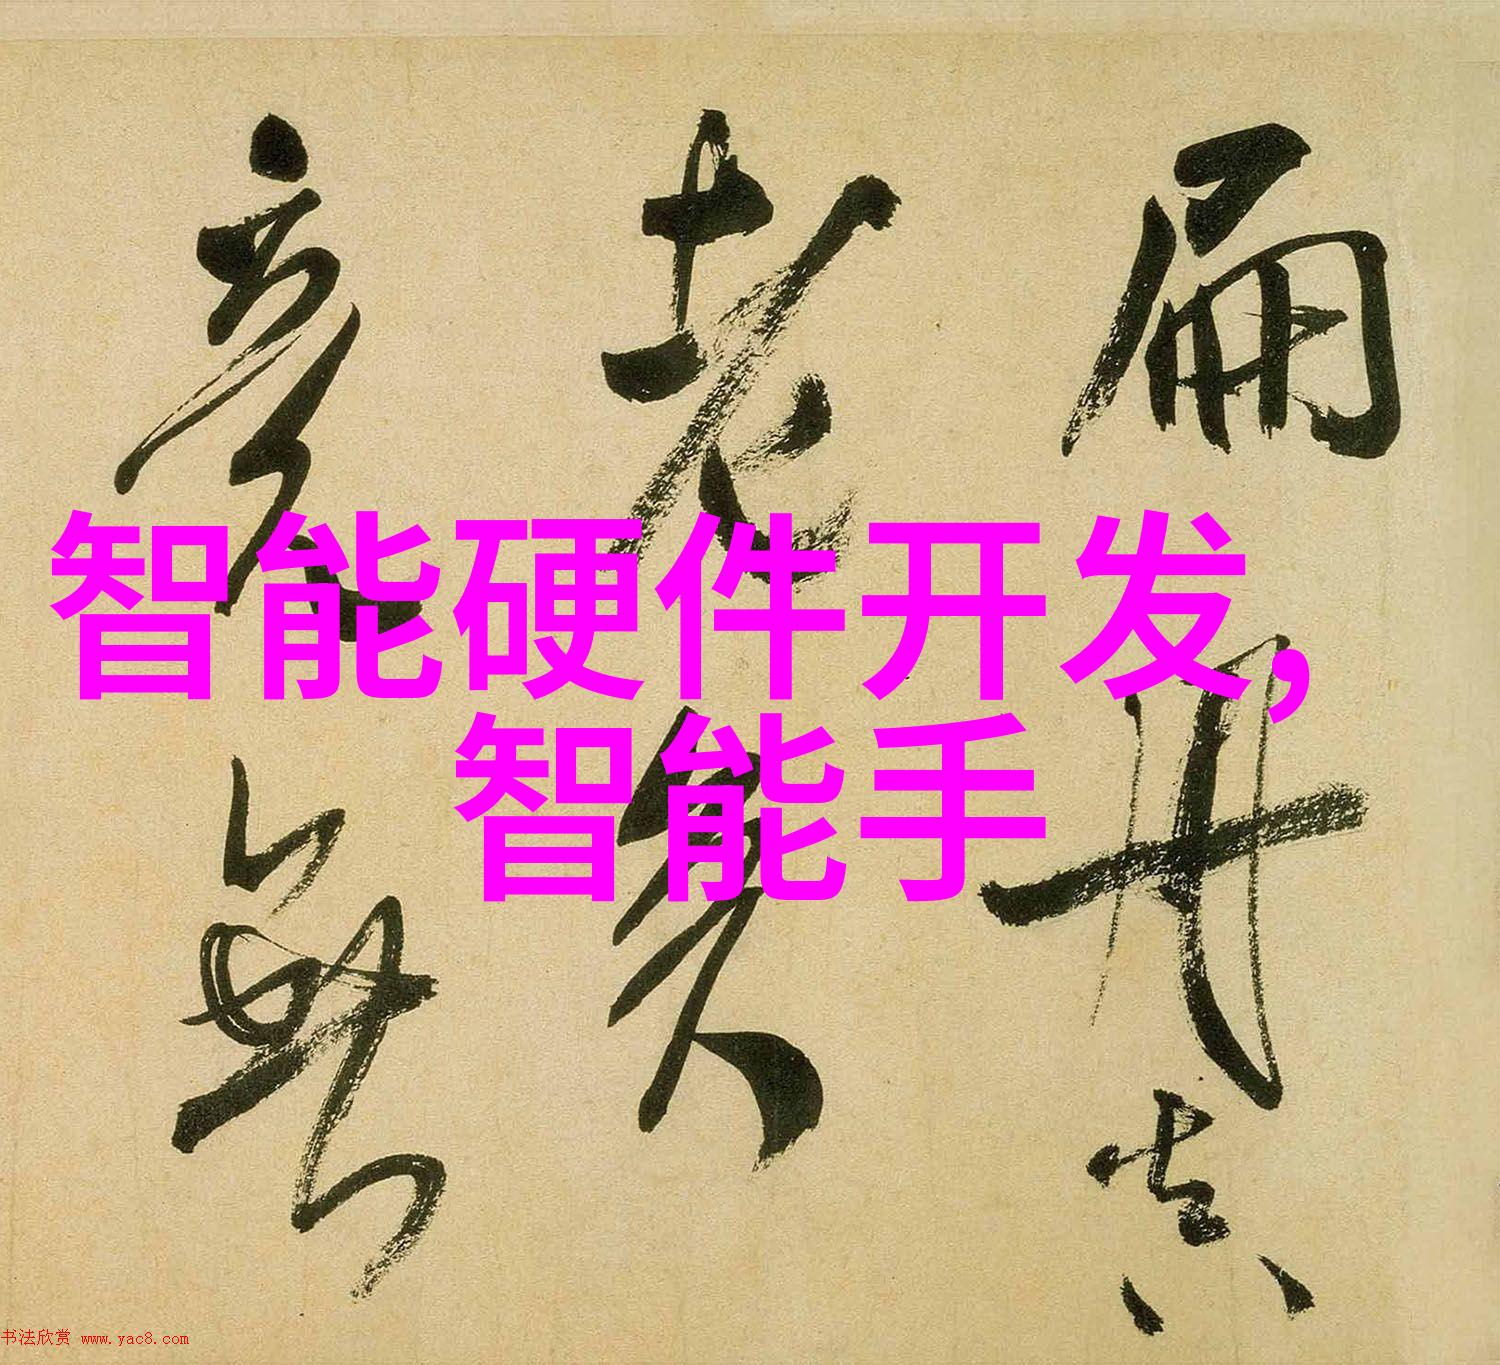 扁舟
老矣
無
智能硬件开发,
智能手
书法欣赏 www.yac8.com